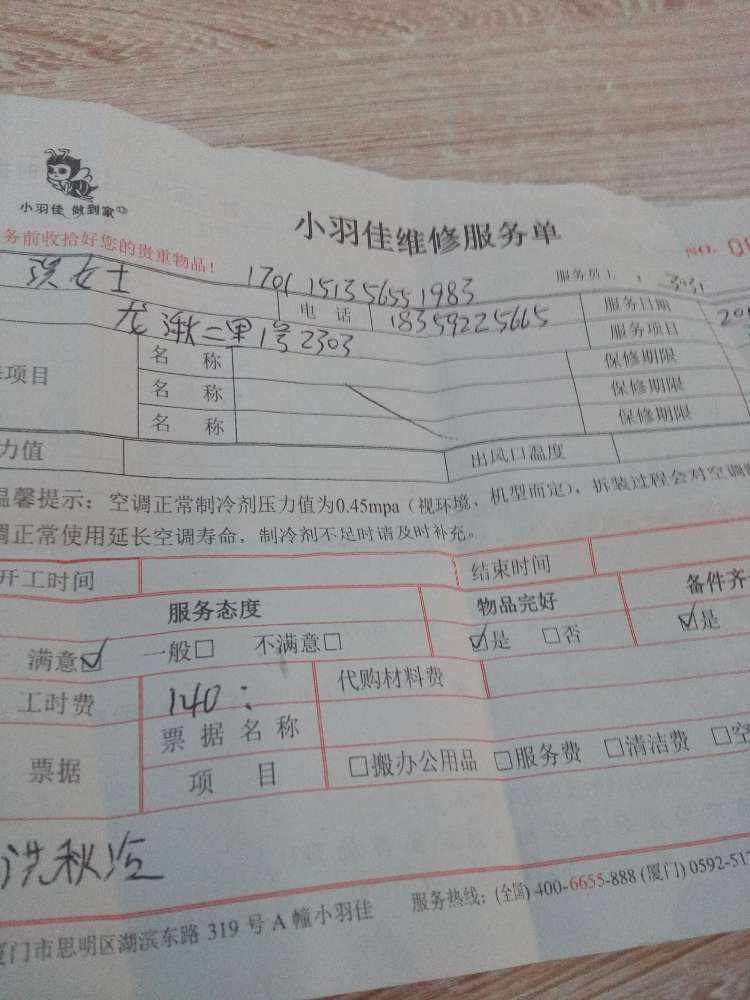 小羽佳 做到家
小羽佳维修服务单
NO. 00
务前收拾好您的贵重物品！
女士 1701 15135655 1983 服务员工 : 3031
电 话 18359225665 服务日期 20
龙 二里1号2303 服务项目
项目 名 称 保修期限
名 称 保修期限
名 称 保修期限
力值 出风口温度
温馨提示：空调正常制冷剂压力值为0.45mpa（视环境、机型而定），拆装过程会对空调
调正常使用延长空调寿命，制冷剂不足时请及时补充。
开工时间 结束时间
服务态度 物品完好 备件齐
满意☑ 一般□ 不满意□ ☑是 □否 ☑是
工时费 140： 代购材料费
票据 票据名称
项 目 □搬办公用品 □服务费 □清洁费 □空
洪秋
厦门市思明区湖滨东路 319 号 A 幢小羽佳 服务热线：(全国) 400-6655-888 (厦门) 0592-517